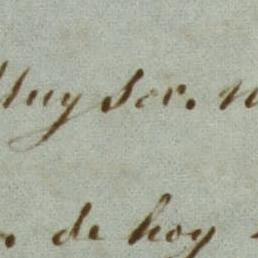 Muy Sor. 
de hoy